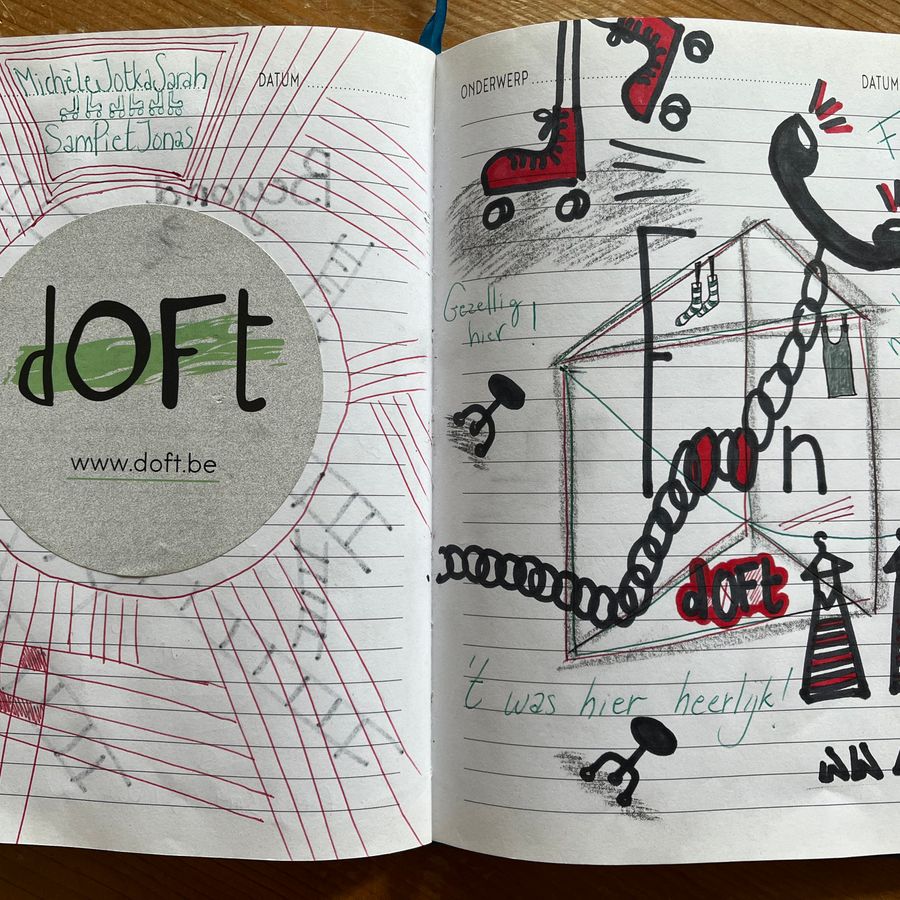 Michèle Jotka Sarah
Sam Piet Jonas
DATUM
dOFt
www.doft.be
ONDERWERP
DATUM
Gezellig
hier !
F
n
dOFt
't was hier heerlijk!